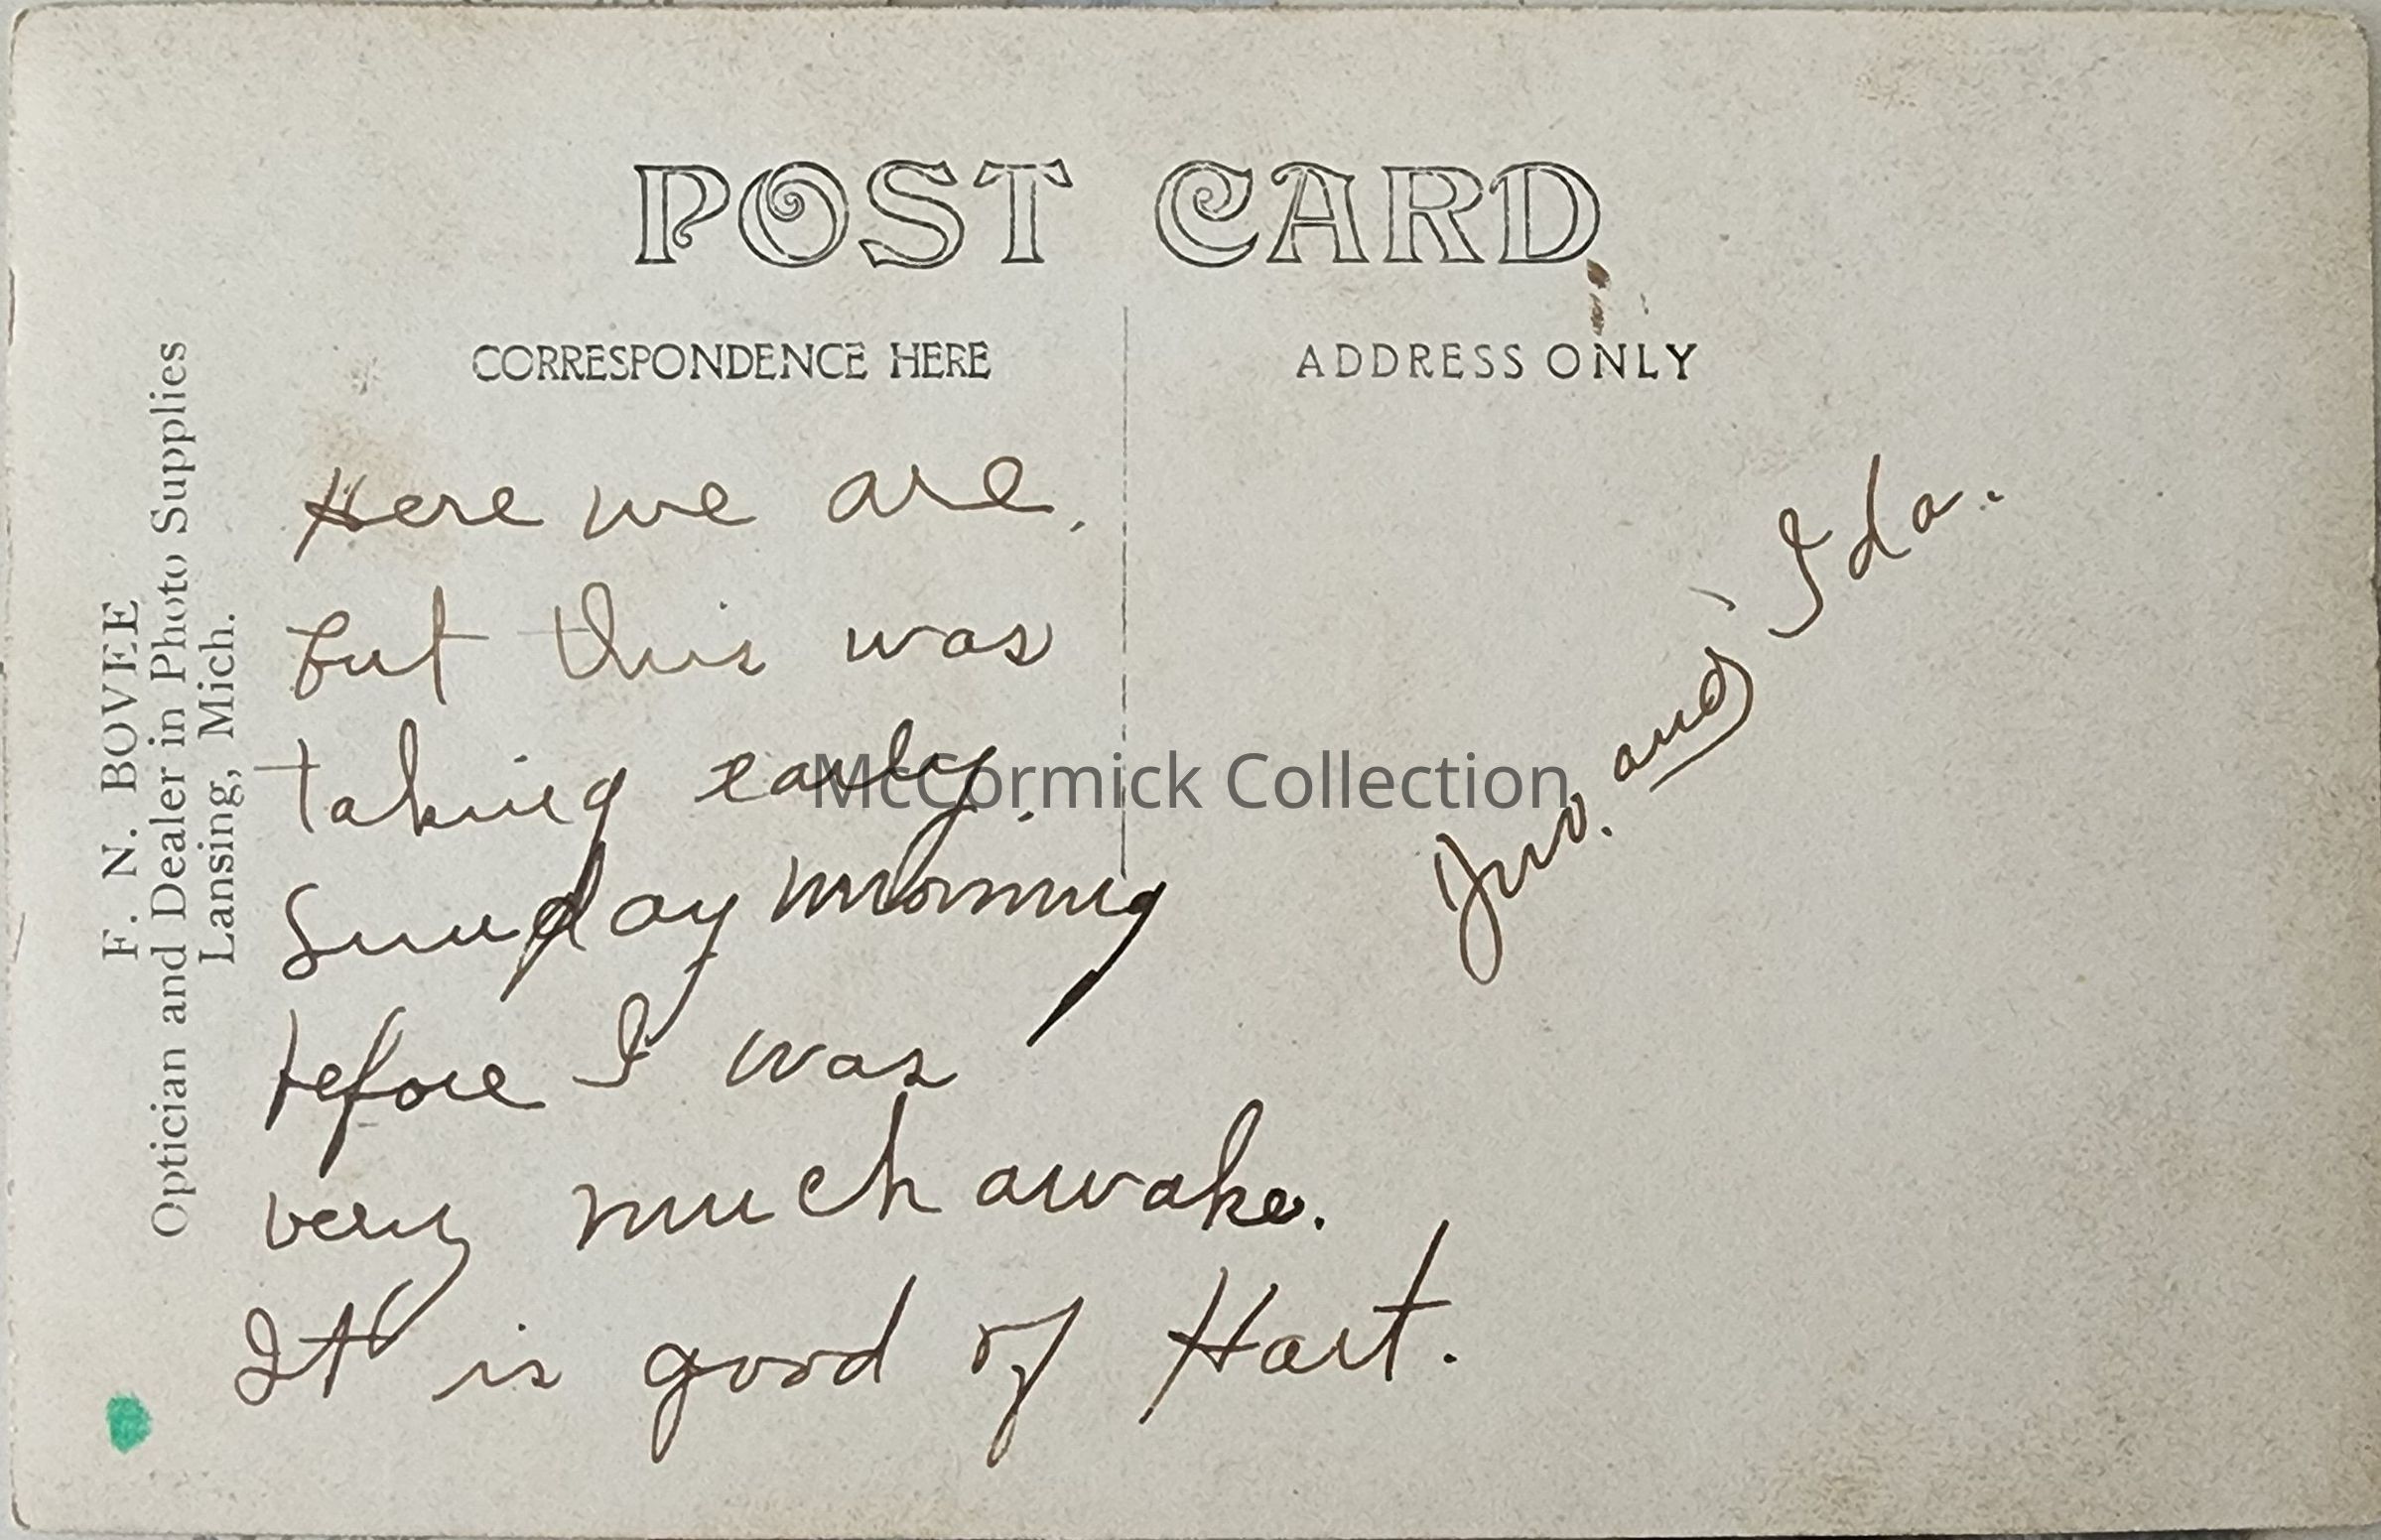 POST CARD
CORRESPONDENCE HERE
ADDRESS ONLY
F. N. BOVEE
Optician and Dealer in Photo Supplies
Lansing, Mich.
Here we are,
but this was
taking early.
Sunday morning
before I was
very much awake.
It is good of Hart.
Jno. and Ida.
McCormick Collection